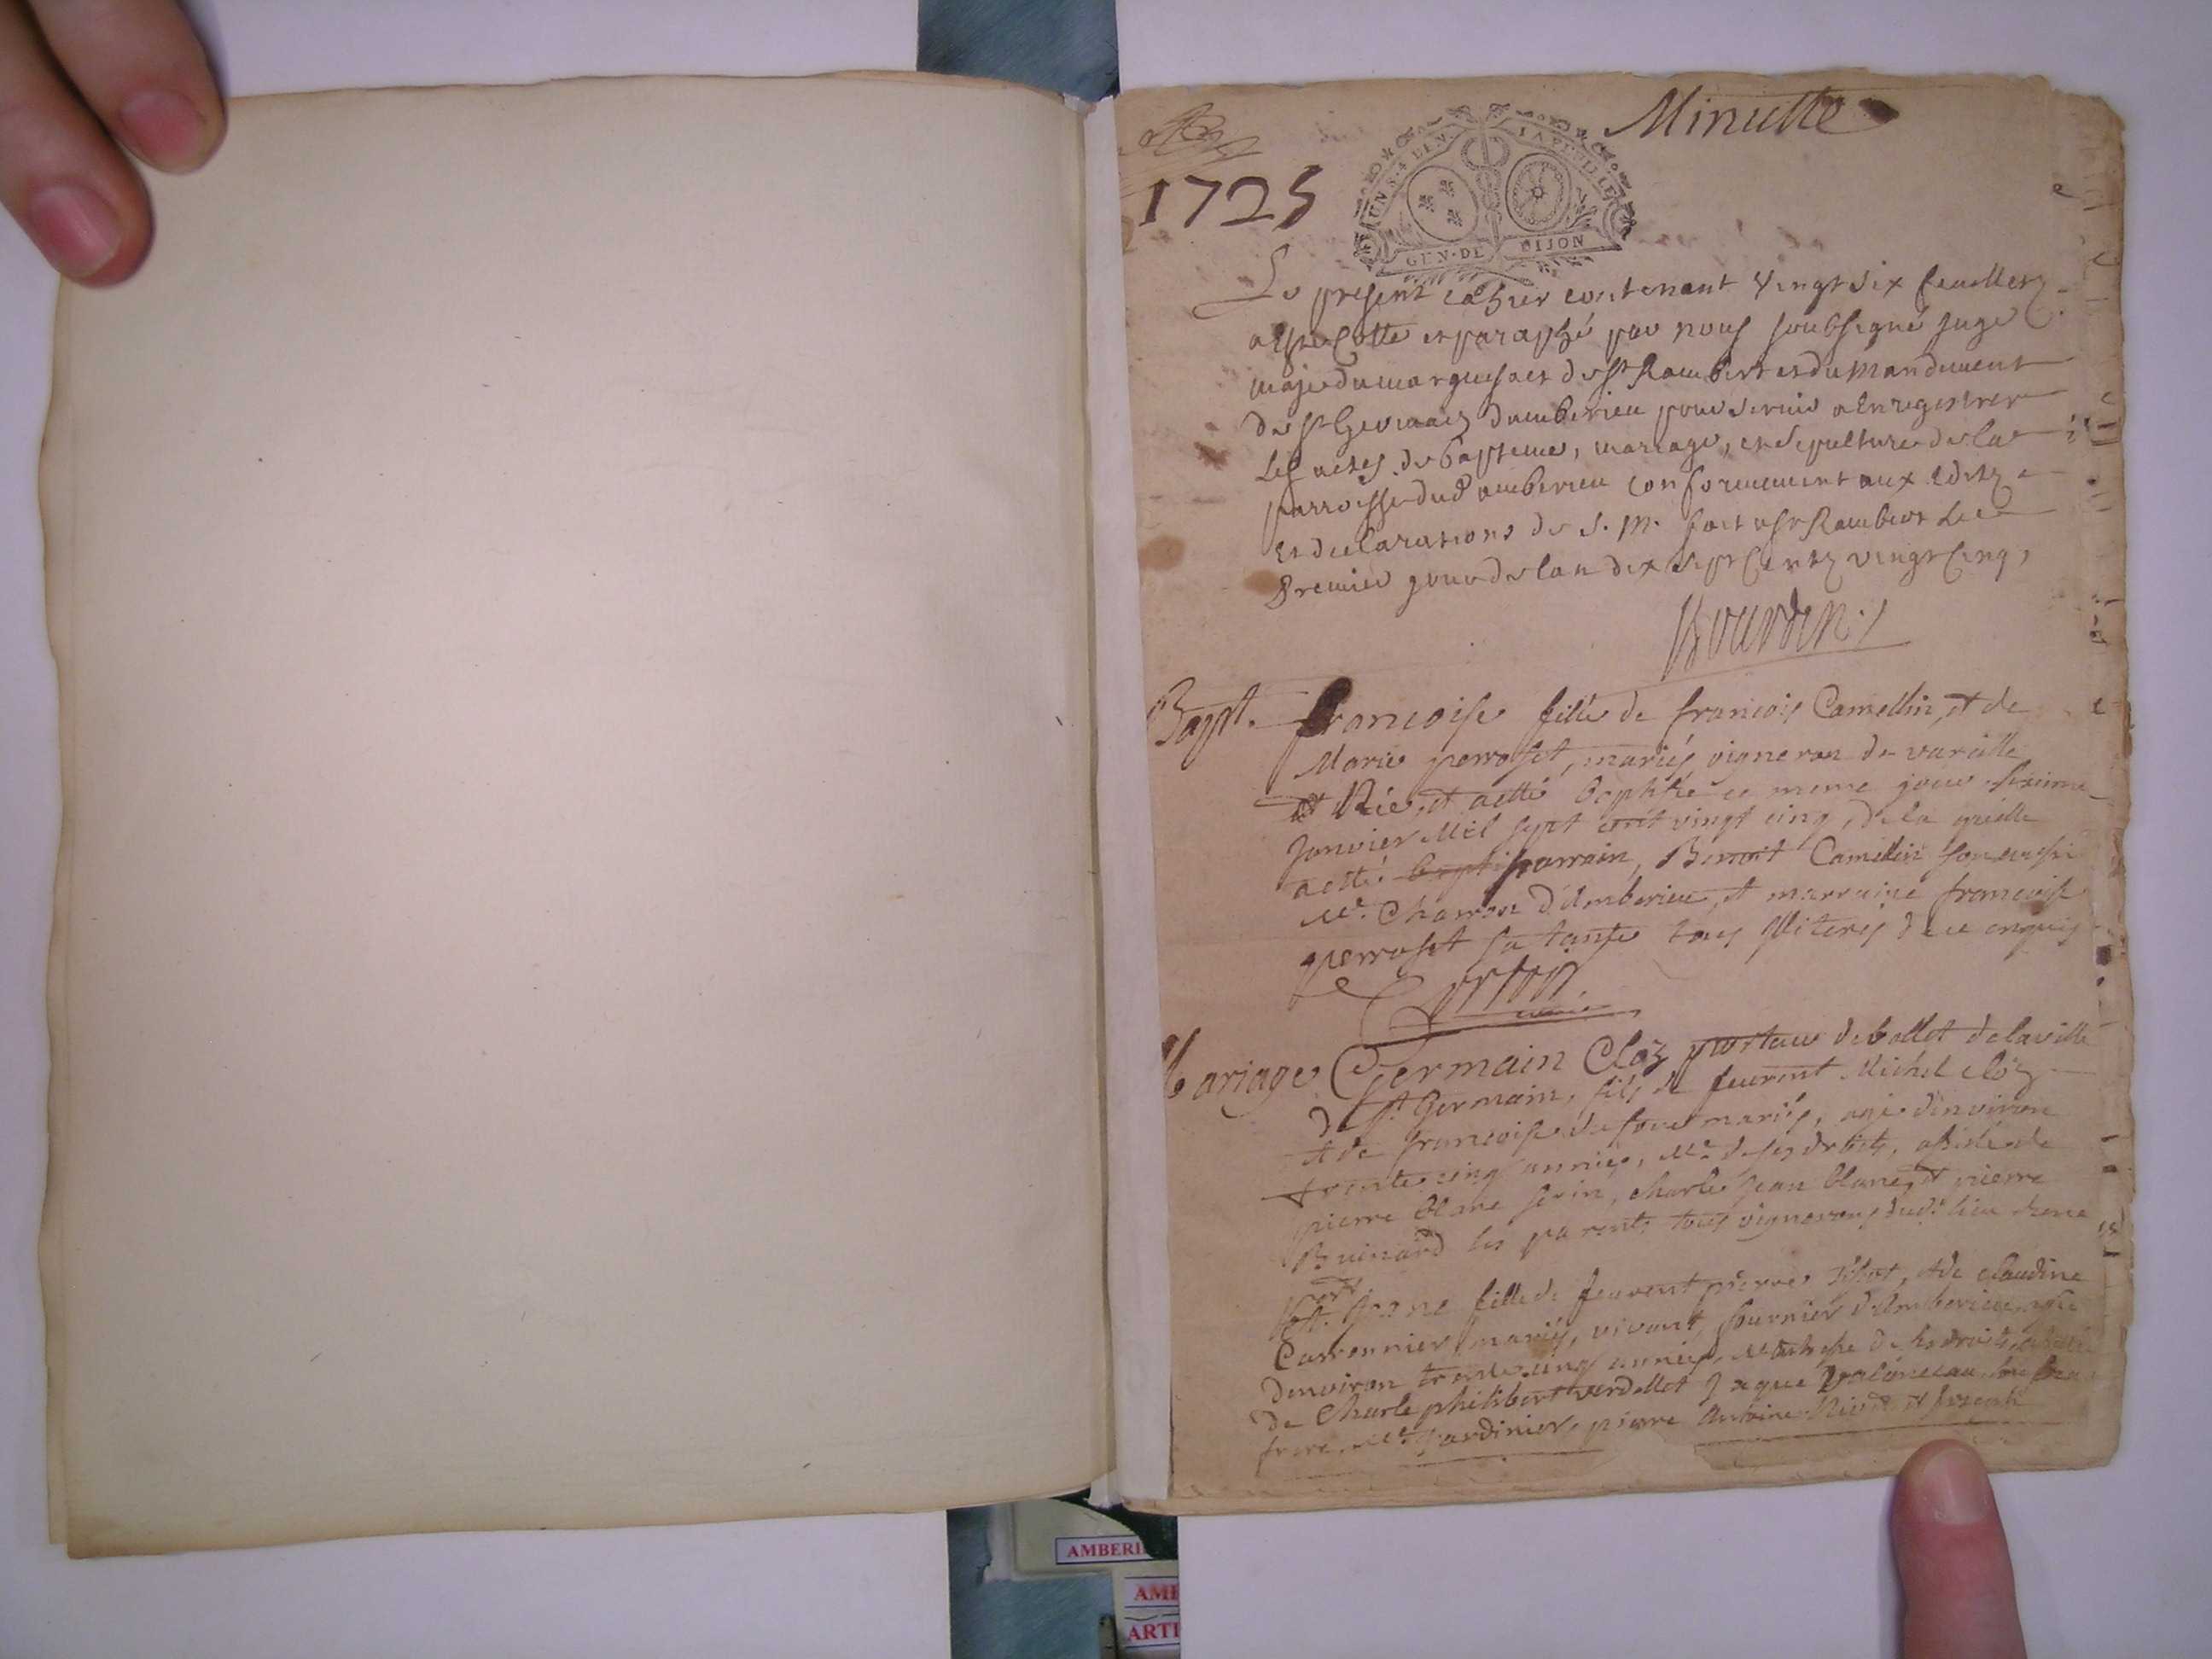 Minutte
1725
UN S. 4 DEN. LA FEUILLE
GEN. DE DIJON
Le present cahier contenant vingt six feuillets
a esté cotté et paraphé par nous soubsigné juge
maje du marquisat de St Rambert et du mandement
de St Germain damberieu pour servir a enregistrer
les actes de bapteme, mariage, et sepulture de la
parroisse dud amberieu conformement aux edits
et declarations de S. M. fait a St Rambert le
premier jour de lan dix sept cents vingt cinq,
Bapt. francoise fille de francois Camellin, et de
Marie perroset, mariés vigneron de vareille
et Née, et a etté baptisée ce meme jour
Janvier Mil sept cent vingt cinq, de la quelle
a etté parrain, Benoit Camellin son
Me. Charron d'Amberieu, et marraine francoise
perroset sa tante tous illiteres de ce enquis
curé
Mariage Germain Cloz porteur de ballot de la ville
de St. Germain, fils de feurent Michel Cloz
et de francoise mariés, agé d'environ
trente cinq années, Me. de ses droits, assisté de
pierre blanc serin, charle Jean blanc, et pierre
Buinard ses parents tous vignerons dud. lieu
et. Jeane fille de feurent pierre, et de claudine
Carronnier mariés, vivant fournier d'Amberieu, agée
d'environ trente cinq années, Maitresse de ses droits,
De Charle philibert verdellet Jaque
frere, Me. Jardinier, pierre Antoine et Joseph
AMBERI
AMB
ARTI